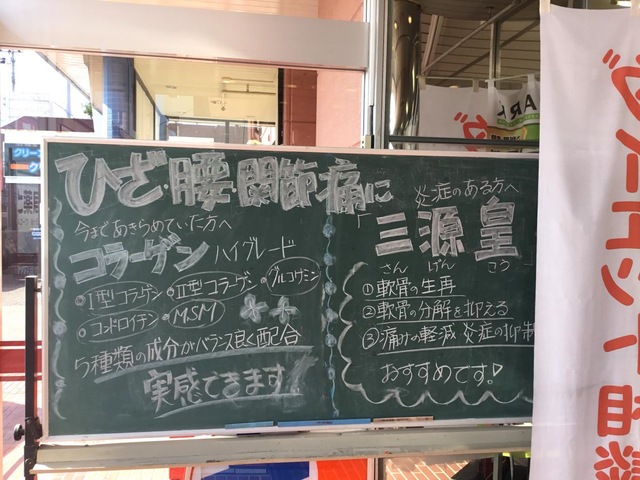 ひざ・腰・関節痛に
今まであきらめていた方へ
コラーゲン ハイグレード
・Ⅰ型コラーゲン ・Ⅱ型コラーゲン ・グルコサミン
・コンドロイチン ・MSM
5種類の成分がバランス良く配合
実感できます!
炎症のある方へ
「三源皇
さん げん こう
①軟骨の生再
②軟骨の分解を抑える
③痛みの軽減 炎症の抑制
おすすめです!
ダイエット相談